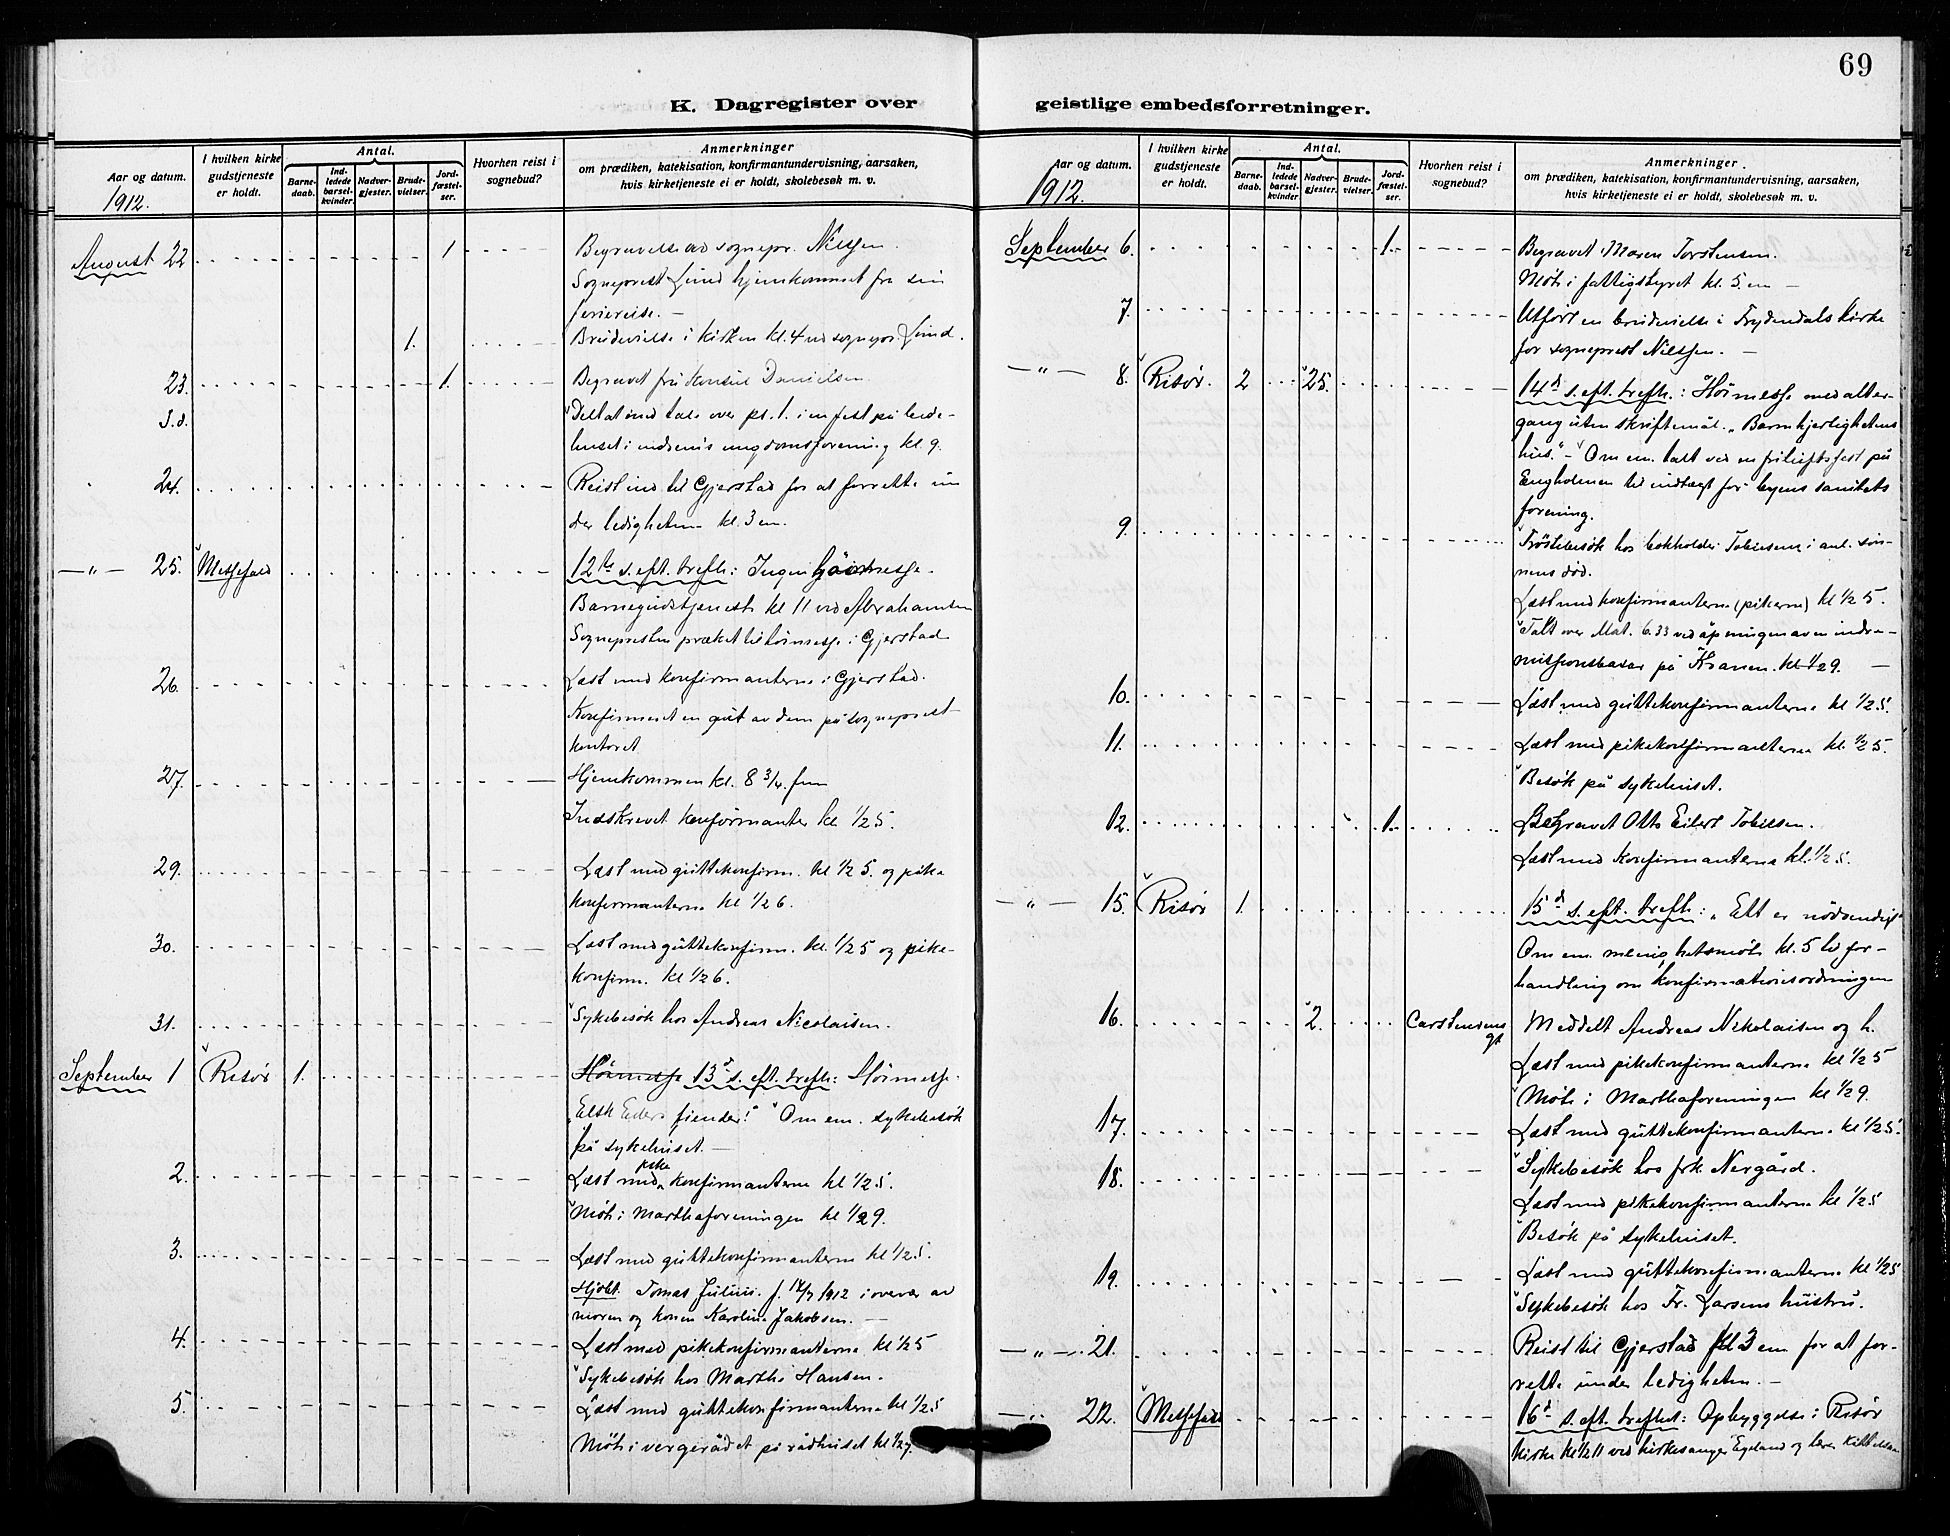 69
K. Dagregister over
geistlige embedsforretninger.
Aar og datum.
1912.
I hvilken kirke gudstjeneste er holdt.
Antal.
Barne-daab.
Ind-ledede barsel-kvinder.
Nadver-gjester.
Brude-vielser.
Jord-fæstel-ser.
Hvorhen reist i sognebud?
Anmerkninger
om prædiken, katekisation, konfirmantundervisning, aarsaken,
hvis kirketjeneste ei er holdt, skolebesøk m. v.
August 22 1. Begravelse ved sognepr. Nilssen.
Sogneprest Lund hjemkommet fra sin
feriereise. —
1. Brudevielse i kirken kl. 4 ved sognepr. Lund.
23. 1. Begravet fru konsul Danielsen.
S.d. Deltat med tale over ps. 1. i en fest på bede-
huset i indremis ungdomsforening kl. 9.
24. Reist ind til Gjerstad for at forrette un
der ledigheten kl. 3 em.
— " — 25. Messefald 12te s. eft. trefh.: Ingen høimesse.
Barnegudstjeneste kl 11 ved Abrahamsen
Sognepresten præket til høimesse i Gjerstad
26. Læst med konfirmanterne i Gjerstad.
Konfirmert en gut av dem på sogneprest
kontoret.
27. Hjemkommen kl. 8 3/4 fm
Indskrevet konfirmanter kl 1/2 5.
29. Læst med guttekonfirm. kl 1/2 5. og pike
konfirmanterne kl 1/2 6.
30. Læst med guttekonfirm. kl. 1/2 5 og pike-
konfirm. kl 1/2 6.
31. Sykebesøk hos Andreas Nicolaisen.
September 1 Risør 1. Høimesse 13d s. eft. trefh: Høimesse.
"Elsk Eders fiender!" Om em. sykebesøk
på sykehuset. —
2. Læst med pike konfirmanterne kl 1/2 5.
Møte i Marthaforeningen kl 1/2 9.
3. Læst med guttekonfirmanterne kl 1/2 5.
Hjdbt. Tomas Julius. f. 1912 i overvær av
moren og konen Karoline Jakobsen. —
4. Læst med pikekonfirmanterne kl 1/2 5
Sykebesøk hos Marthe Hansen.
5. Læst med guttekonfirmanterne kl 1/2 5
Møte i vergerådet på rådhuset kl 1/2 7.
Aar og datum.
1912.
I hvilken kirke gudstjeneste er holdt.
Antal.
Barne-daab.
Ind-ledede barsel-kvinder.
Nadver-gjester.
Brude-vielser.
Jord-fæstel-ser.
Hvorhen reist i sognebud?
Anmerkninger
om prædiken, katekisation, konfirmantundervisning, aarsaken,
hvis kirketjeneste ei er holdt, skolebesøk m. v.
September 6. 1. Begravet Maren Torstensen.
Møte i fattigstyret kl. 5. em —
7. Utført en brudevielse i Frydendals kirke
for sogneprest Nilssen. —
— " — 8. Risør. 2 25. 14d s. eft. trefh.: Høimesse med alter-
gang uten skriftemål. "Barmhjertighetens
hus." — Om em. talt ved en friluftsfest på
Engholmen til indtægt for byens sanitets
forening.
9. Trøstebesøk hos bokholder Tobiesen i anl. søn-
nens død.
Læst med konfirmanterne (pikerne) kl 1/2 5.
Talt over Mat. 6.33 ved åpningen av en indre-
missionsbasar på Kranen. kl 1/2 9. —
10. Læst med guttekonfirmanterne kl 1/2 5.
11. Læst med pikekonfirmanterne kl. 1/2 5.
Besøk på sykehuset.
12. 1. Begravet Otto Eilert Tobiesen.
Læst med konfirmanterne kl. 1/2 5.
— " — 15. Risør 1. 15d s. eft. trefh.: "Ett er nødvendigt"
Om em. menighetsmøte kl. 5 til for-
handling om konfirmationsordningen
16. 2. Carstensens gt Meddelt Andreas Nikolaisen og h.
Læst med pikekonfirmanterne kl 1/2 5
Møte i Marthaforeningen kl 1/2 9.
17. Læst med guttekonfirmanterne kl 1/2 5.
18. Sykebesøk hos frk. Nergård.
Læst med pikekonfirmanterne kl 1/2 5
Besøk på sykehuset.
19. Læst med guttekonfirmanterne kl 1/2 5
Sykebesøk hos Fr. Larsens hustru.
— " — 21. Reist til Gjerstad kl 3 em for at for-
rette under ledigheten. —
— " 22. Messefald 16d s. eft. trefhet: Opbyggelse i Risør
kirke kl 1/2 11 ved kirkesanger Egeland og lærer Kittelsen